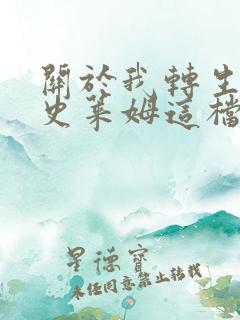 關於我轉生
史萊姆這檔
星德寶
未经同意禁止转载